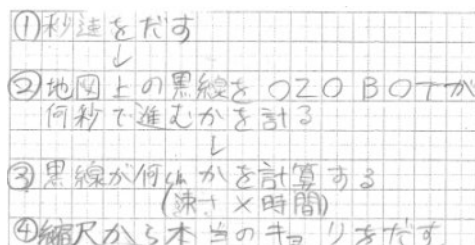 ①秒速をだす
↓
②地図上の黒線をOZOBOTが
何秒で進むかを計る
↓
③黒線が何cmかを計算する
(速さ×時間)
④縮尺から本当のキョリをだす